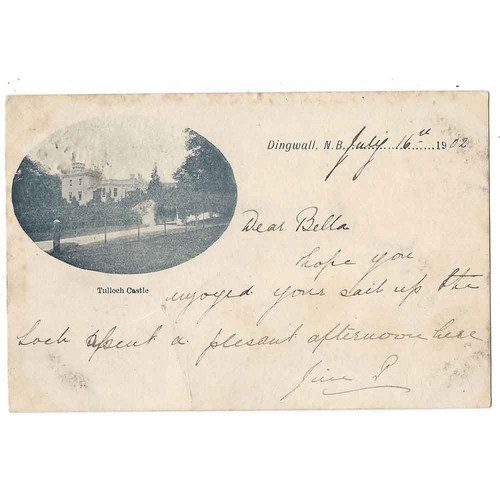 Dingwall, N.B. July 16th 1902
Tulloch Castle
Dear Bella
hope you
enjoyed your sail up the
Loch spent a plesent afternoon here
Jim P